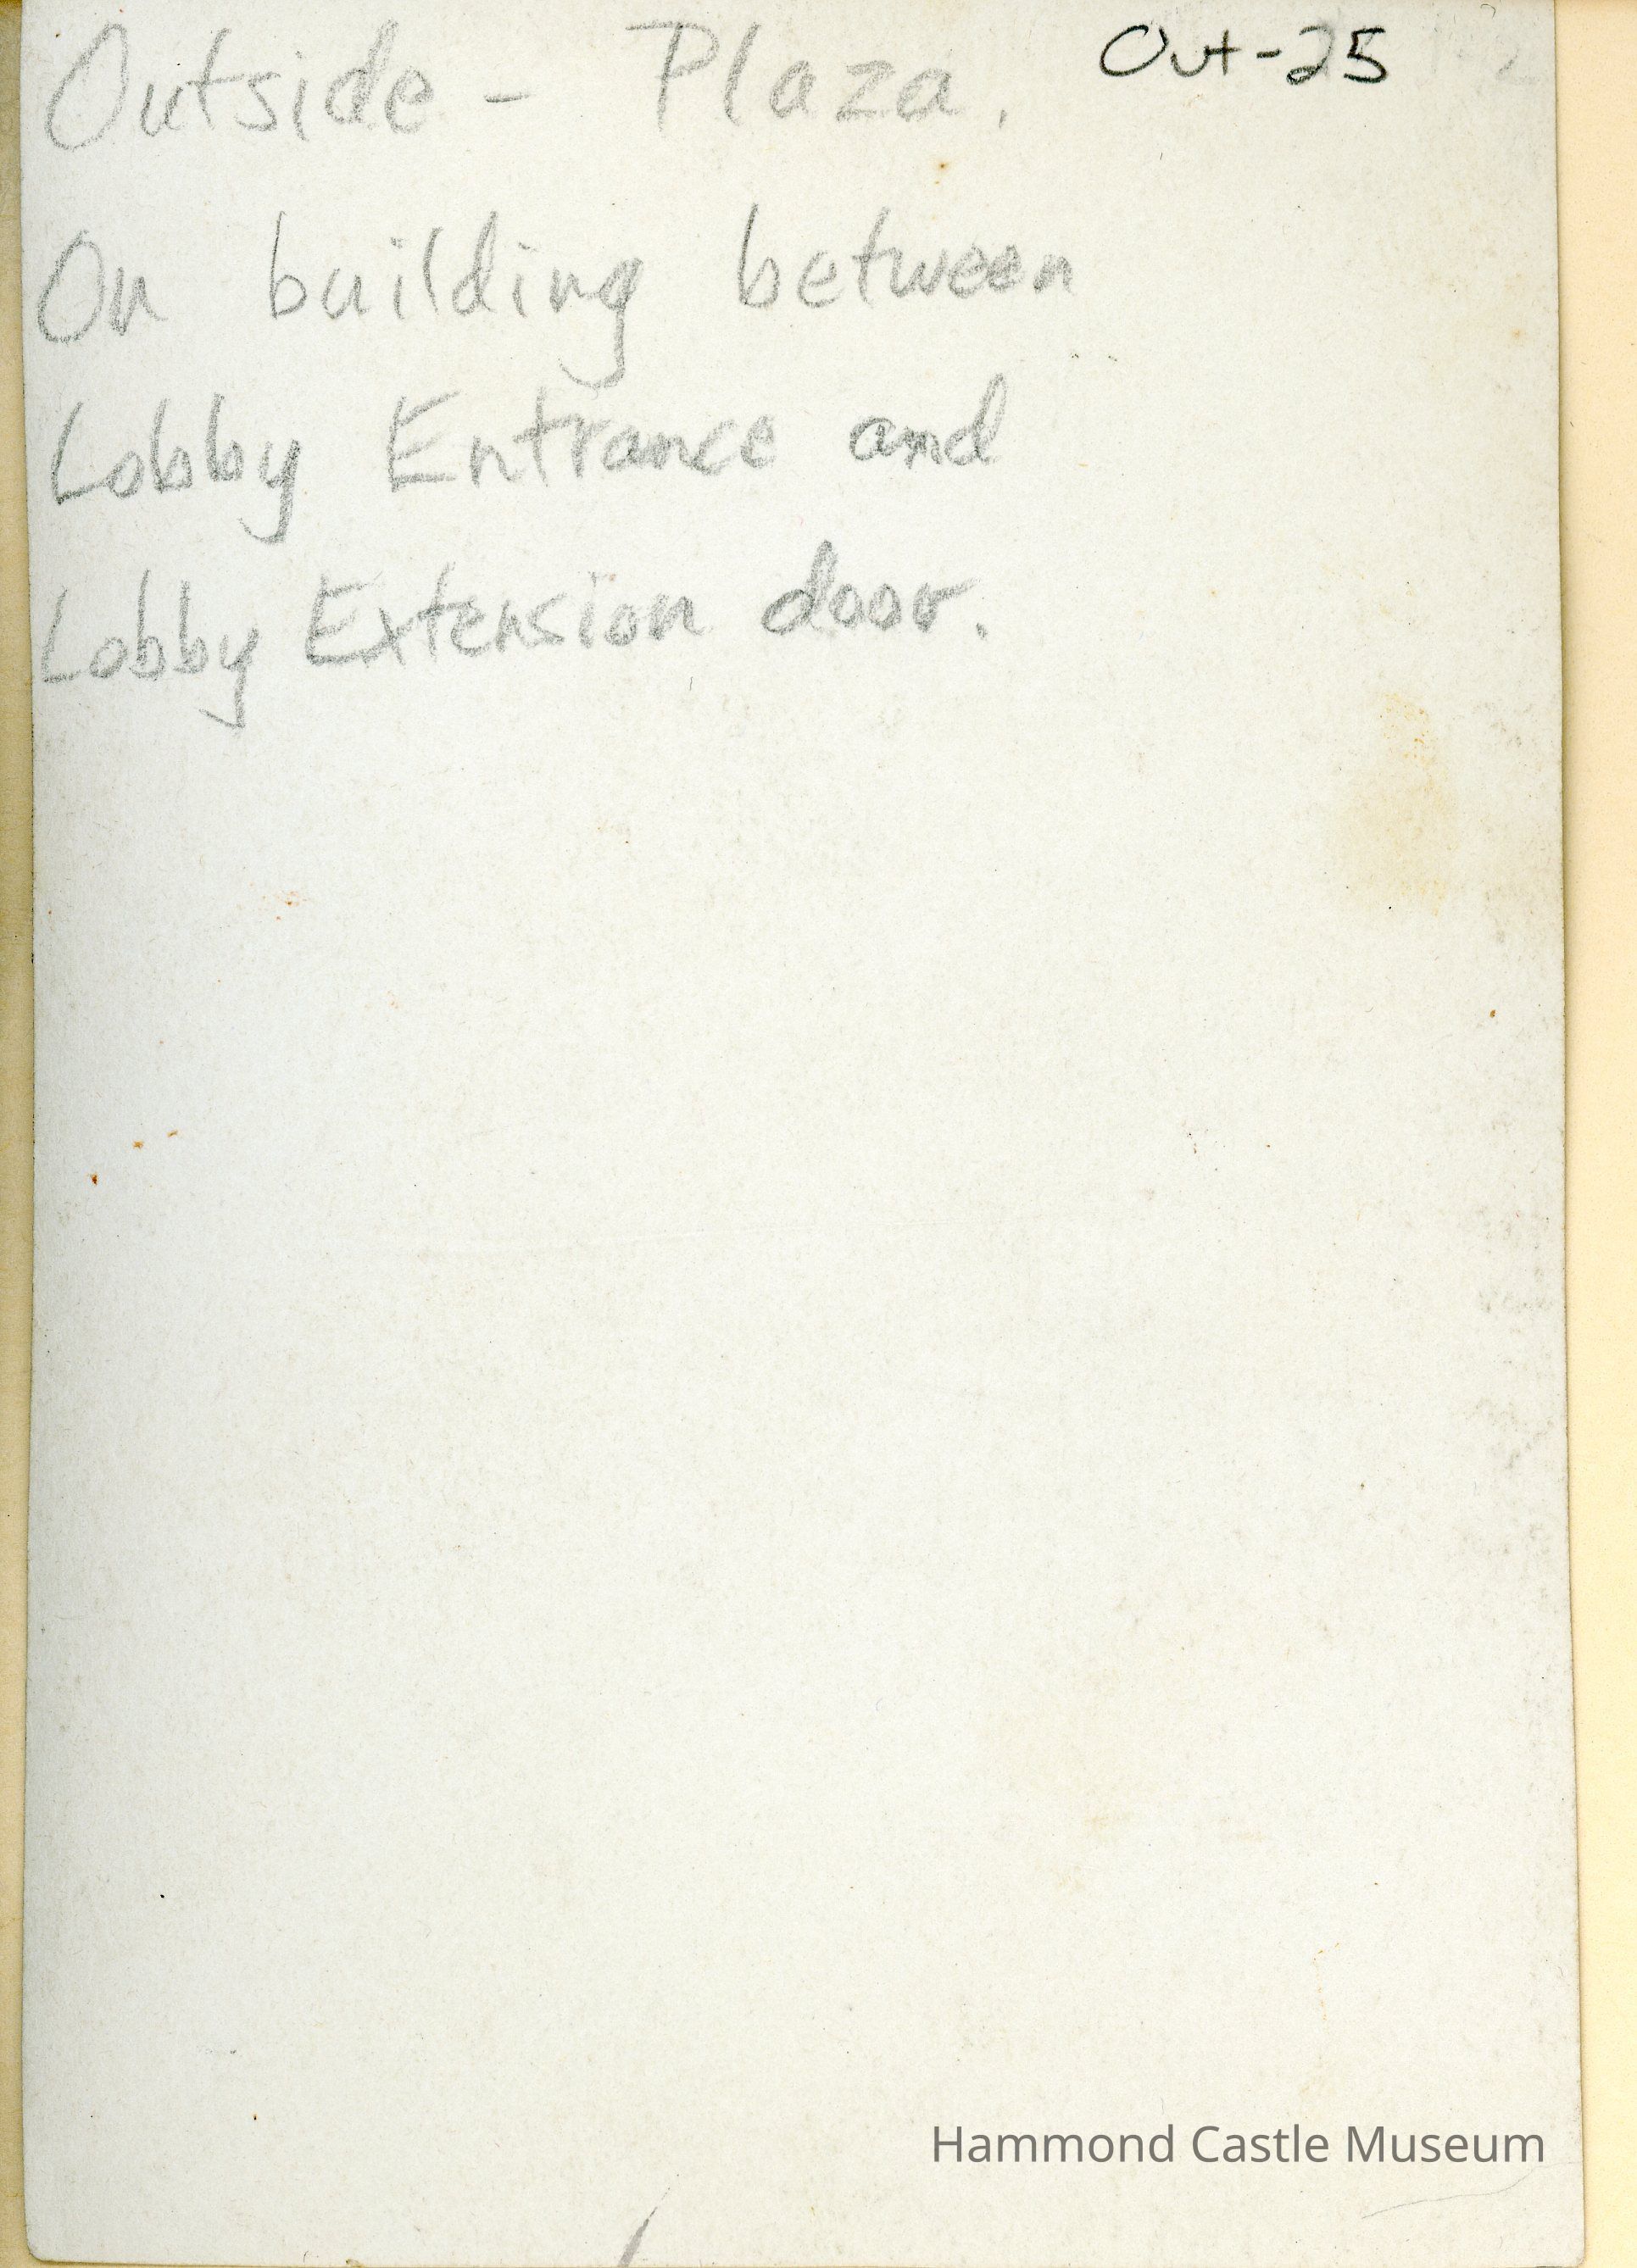 Outside - Plaza. Out-25
On building between
Lobby Entrance and
Lobby Extension door.
Hammond Castle Museum